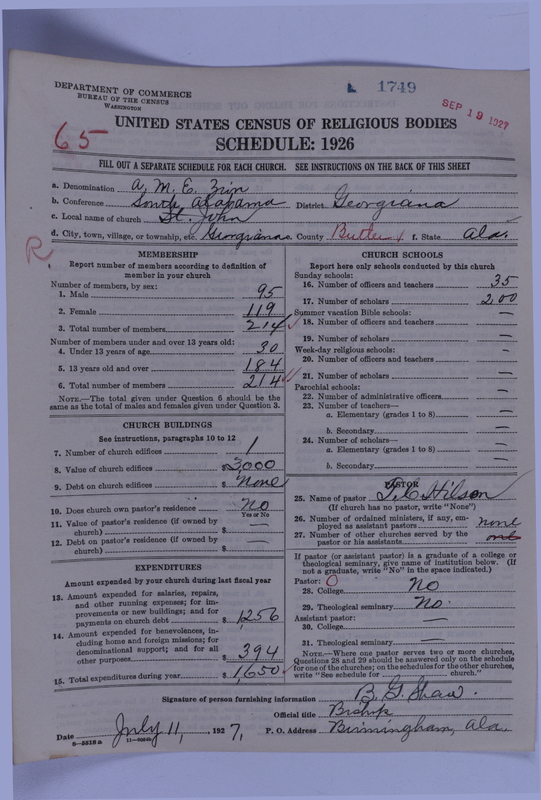 DEPARTMENT OF COMMERCE
BUREAU OF THE CENSUS
WASHINGTON
1749
SEP 19 1927
65
UNITED STATES CENSUS OF RELIGIOUS BODIES
SCHEDULE: 1926
FILL OUT A SEPARATE SCHEDULE FOR EACH CHURCH. SEE INSTRUCTIONS ON THE BACK OF THIS SHEET
a. Denomination A. M. E. Zion
b. Conference South Alabama District Georgiana
c. Local name of church St. John
d. City, town, village, or township, etc. Georgiana e. County Butler f. State Ala.
R.
MEMBERSHIP
Report number of members according to definition of
member in your church
Number of members, by sex:
1. Male 95
2. Female 119
3. Total number of members 214
Number of members under and over 13 years old:
4. Under 13 years of age 30
5. 13 years old and over 184
6. Total number of members 214
NOTE.—The total given under Question 6 should be the
same as the total of males and females given under Question 3.
CHURCH BUILDINGS
See instructions, paragraphs 10 to 12
7. Number of church edifices 1
8. Value of church edifices $3000
9. Debt on church edifices $ None
10. Does church own pastor's residence? No
Yes or No
11. Value of pastor's residence (if owned by
church) $ —
12. Debt on pastor's residence (if owned by
church) $ —
EXPENDITURES
Amount expended by your church during last fiscal year
13. Amount expended for salaries, repairs,
and other running expenses; for im-
provements or new buildings; and for
payments on church debt $ 1,256
14. Amount expended for benevolences, in-
cluding home and foreign missions; for
denominational support; and for all
other purposes $ 394
15. Total expenditures during year $ 1,650
CHURCH SCHOOLS
Report here only schools conducted by this church
Sunday schools:
16. Number of officers and teachers 35
17. Number of scholars 200
Summer vacation Bible schools:
18. Number of officers and teachers —
19. Number of scholars —
Week-day religious schools:
20. Number of officers and teachers —
21. Number of scholars —
Parochial schools:
22. Number of administrative officers —
23. Number of teachers—
a. Elementary (grades 1 to 8) —
b. Secondary —
24. Number of scholars—
a. Elementary (grades 1 to 8) —
b. Secondary —
PASTOR
25. Name of pastor Hilson
(If church has no pastor, write "None")
26. Number of ordained ministers, if any, em-
ployed as assistant pastors none
27. Number of other churches served by the
pastor or his assistants
If pastor (or assistant pastor) is a graduate of a college or
theological seminary, give name of institution below. (If
not a graduate, write "No" in the space indicated.)
Pastor: O
28. College No
29. Theological seminary No.
Assistant pastor:
30. College —
31. Theological seminary —
NOTE.—Where one pastor serves two or more churches,
Questions 28 and 29 should be answered only on the schedule
for one of the churches; on the schedules for the other churches,
write "See schedule for church."
Signature of person furnishing information B. G. Shaw.
Official title Bishop
Date July 11, 1927, P. O. Address Birmingham, Ala.
8-5518a